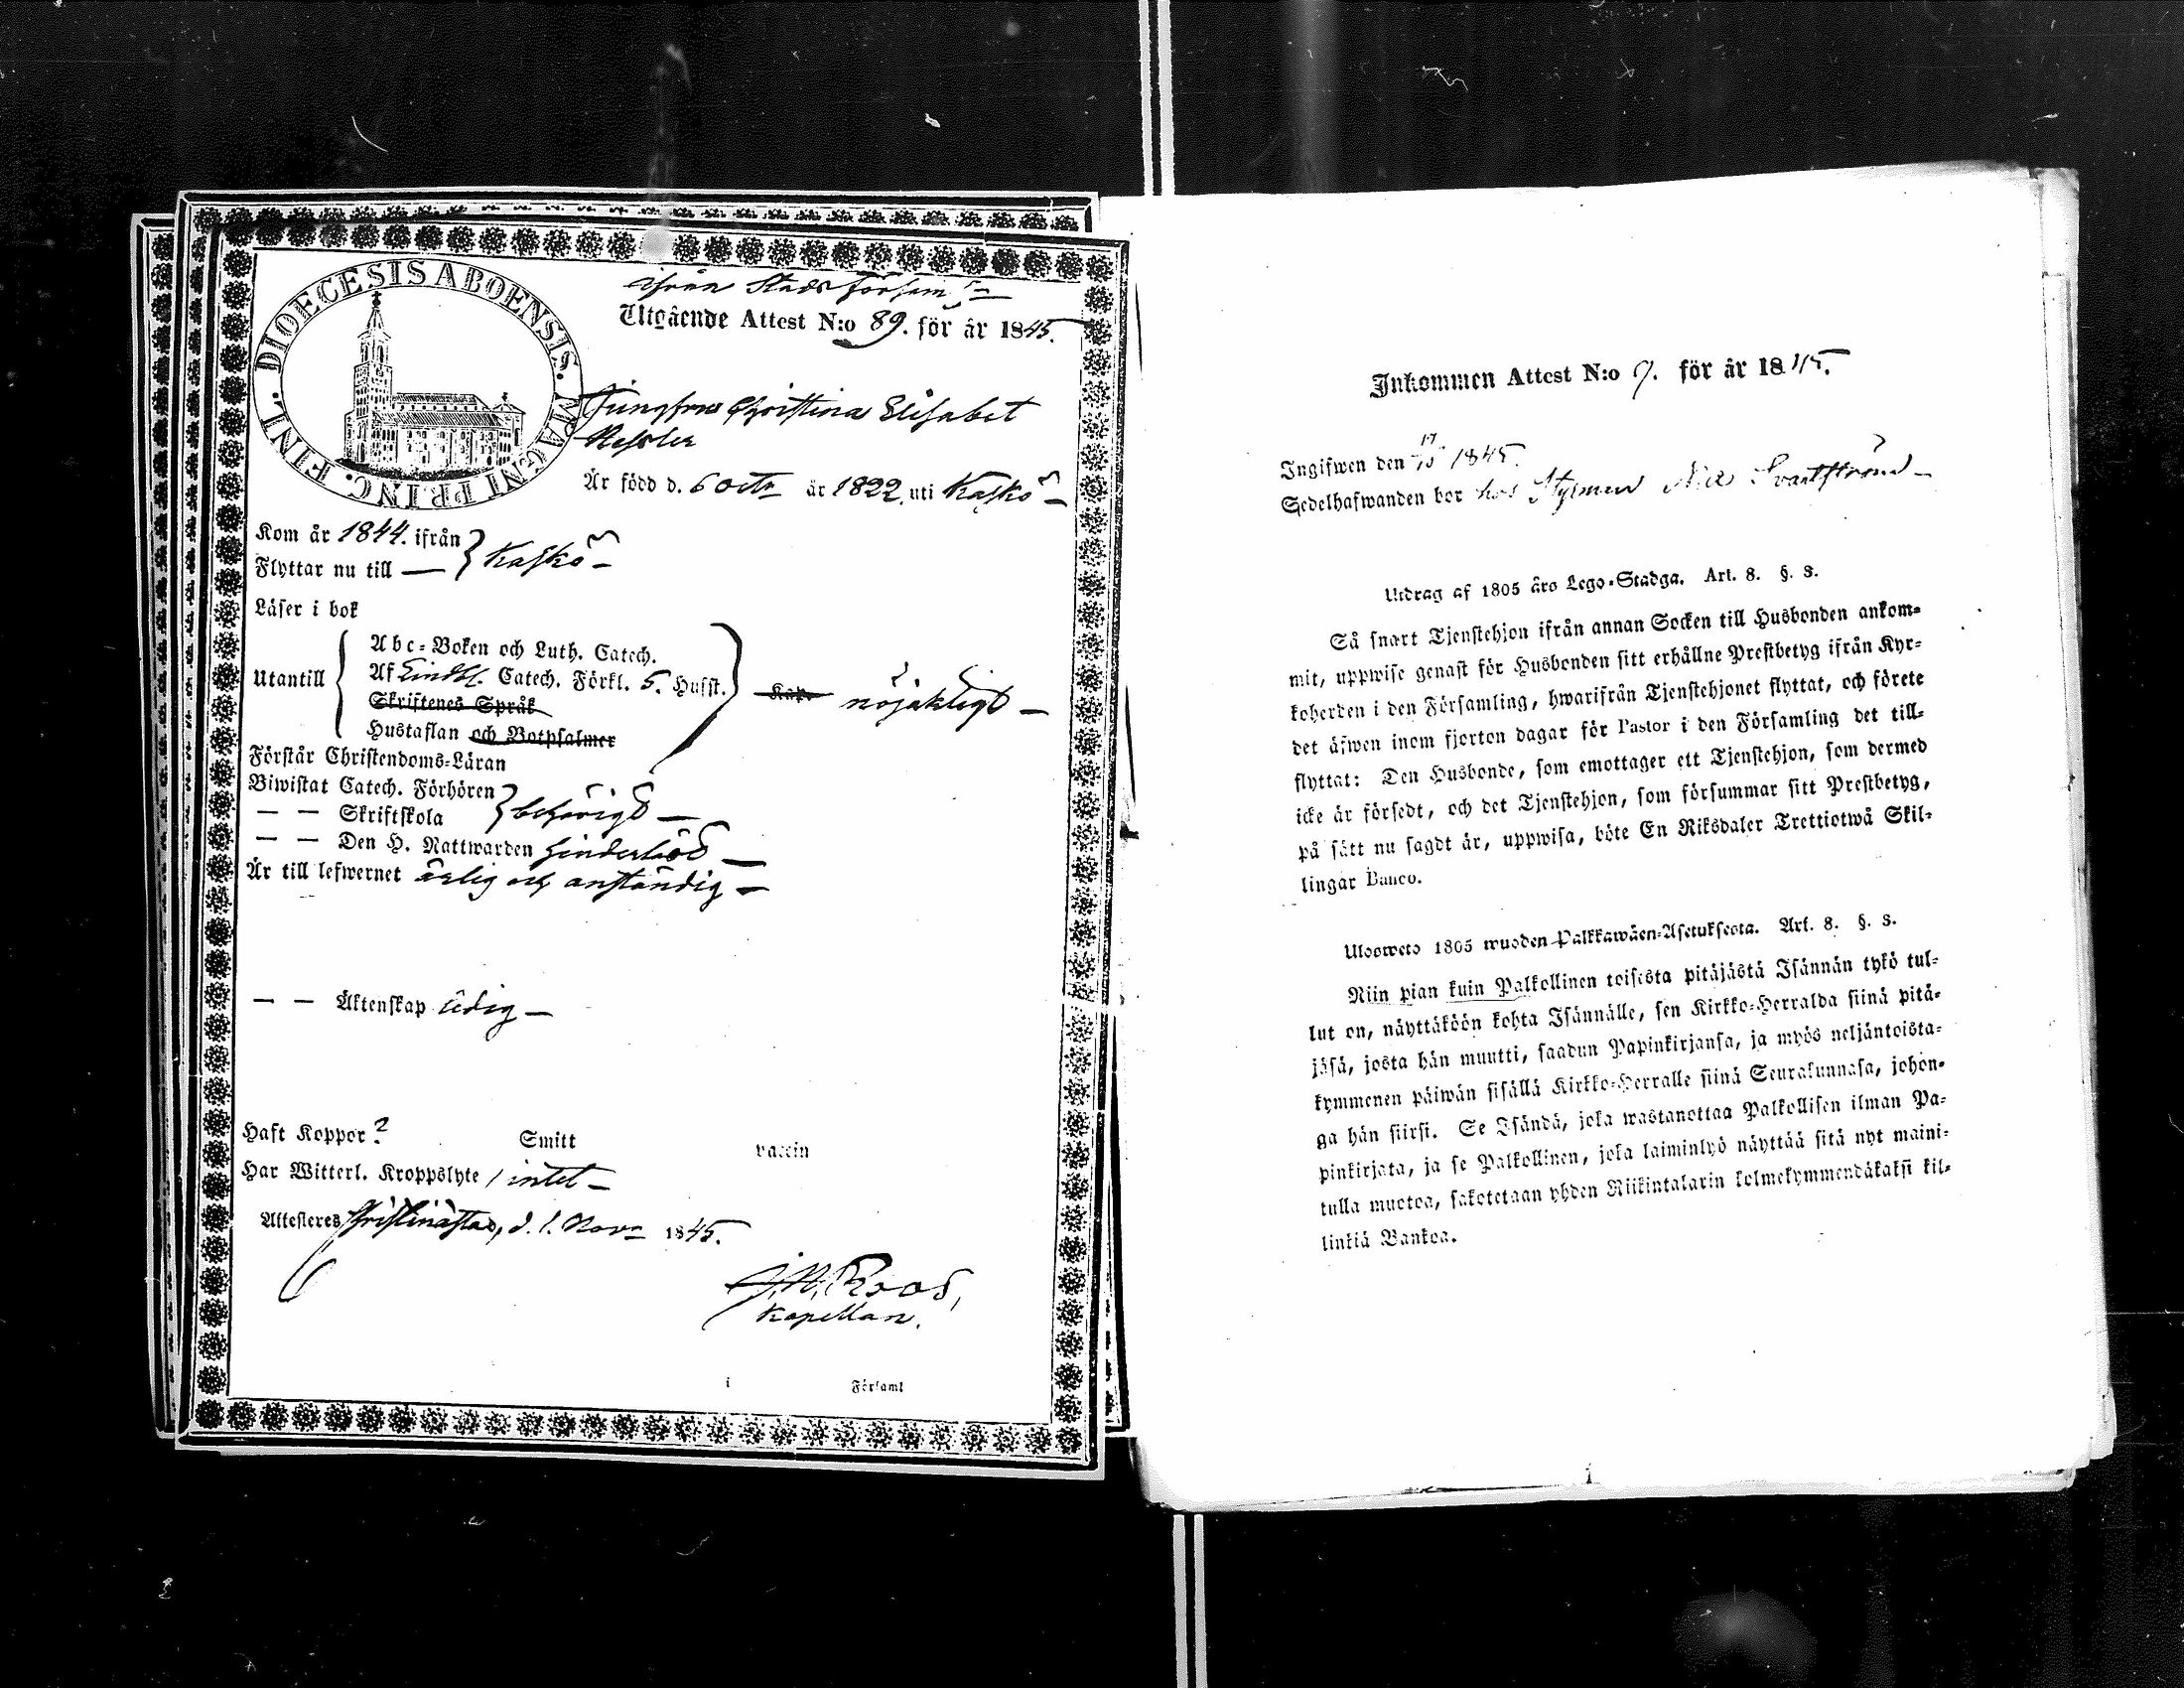 DIOECESIS ABOENSIS. MAGNI PRINC. FINL.
ifrån Stads Församlg
Utgående Attest N:o 89. för år 1845.
Jungfrun Christina Elisabet
Nessler
Är född d. 6 Octr år 1822. uti Kaskö
Kom år 1844. ifrån
Flyttar nu till — } Kaskö —
Läser i bok
Utantill
Abc-Boken och Luth. Catech.
Af Lindbl. Catech. Förkl. 5. Husst.
Skriftenes Språk
Hustaflan och Botpsalmer
nöjaktigt —
Förstår Christendoms-Läran
Biwistat Catech. Förhören
— — Skriftskola } behörigt —
— — Den H. Nattwarden
Är till lefwernet ärlig och anständig —
— — Äktenskap ledig —
Haft Koppor? Smitt vaccin
Har Witterl. Kroppslyte / intet —
Attesteres Christinæstad, d. 1. Novr 1845.
J. N. Roos,
Kapellan.
i Församl
Inkommen Attest N:o 9. för år 1845.
Ingifwen den 1845.
Sedelhafwanden bor hos Styrman Svartström —
Utdrag af 1805 års Lego-Stadga. Art. 8. §. 3.
Så snart Tjenstehjon ifrån annan Socken till Husbonden ankom-
mit, uppwise genast för Husbonden sitt erhållne Prestbetyg ifrån Kyr-
koherden i den Församling, hwarifrån Tjenstehjonet flyttat, och förete
det äfwen inom fjorton dagar för Pastor i den Församling det till-
flyttat: Den Husbonde, som emottager ett Tjenstehjon, som dermed
icke är försedt, och det Tjenstehjon, som försummar sitt Prestbetyg,
på sätt nu sagdt är, uppwisa, böte En Riksdaler Trettiotwå Skil-
lingar Banco.
Uloswets 1805 wuoden Palkkawäen-Asetuksesta. Art. 8. §. 3.
Niin pian kuin Palkollinen toisesta pitäjästä Isännän tykö tul-
lut on, näyttäköön kohta Isännälle, sen Kirkko-Herralda siinä pitä-
jäsä, josta hän muutti, saadun Papinkirjansa, ja myös neljäntoista-
kymmenen päiwän sisällä Kirkko-Herralle siinä Seurakunnasa, johon-
ga hän siirsi. Se Isändä, joka wastanottaa Palkollisen ilman Pa-
pinkirjata, ja se Palkollinen, joka laiminlyö näyttää sitä nyt maini-
tulla muotoa, sakotetaan yhden Riikintalarin kolmekymmendäkaksi kil-
linkiä Bankoa.